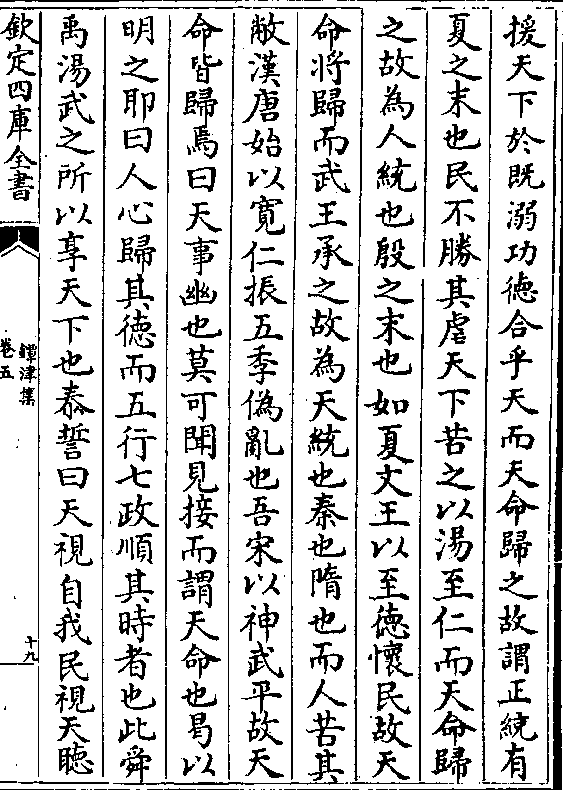 援天下於既溺功德合乎天而天命歸之故謂正統有
夏之末也民不勝其虐天下苦之以湯至仁而天命歸
之故為人統也殷之末也如夏文王以至德懷民故天
命將歸而武王承之故為天統也秦也隋也而人苦其
敝漢唐始以寛仁振五季偽亂也吾宋以神武平故天
命皆歸焉曰天事幽也莫可聞見接而謂天命也曷以
明之耶曰人心歸其德而五行七政順其時者也此舜
禹湯武之所以享天下也泰誓曰天視自我民視天聽
欽定四庫全書
鐔津集
卷五
十九